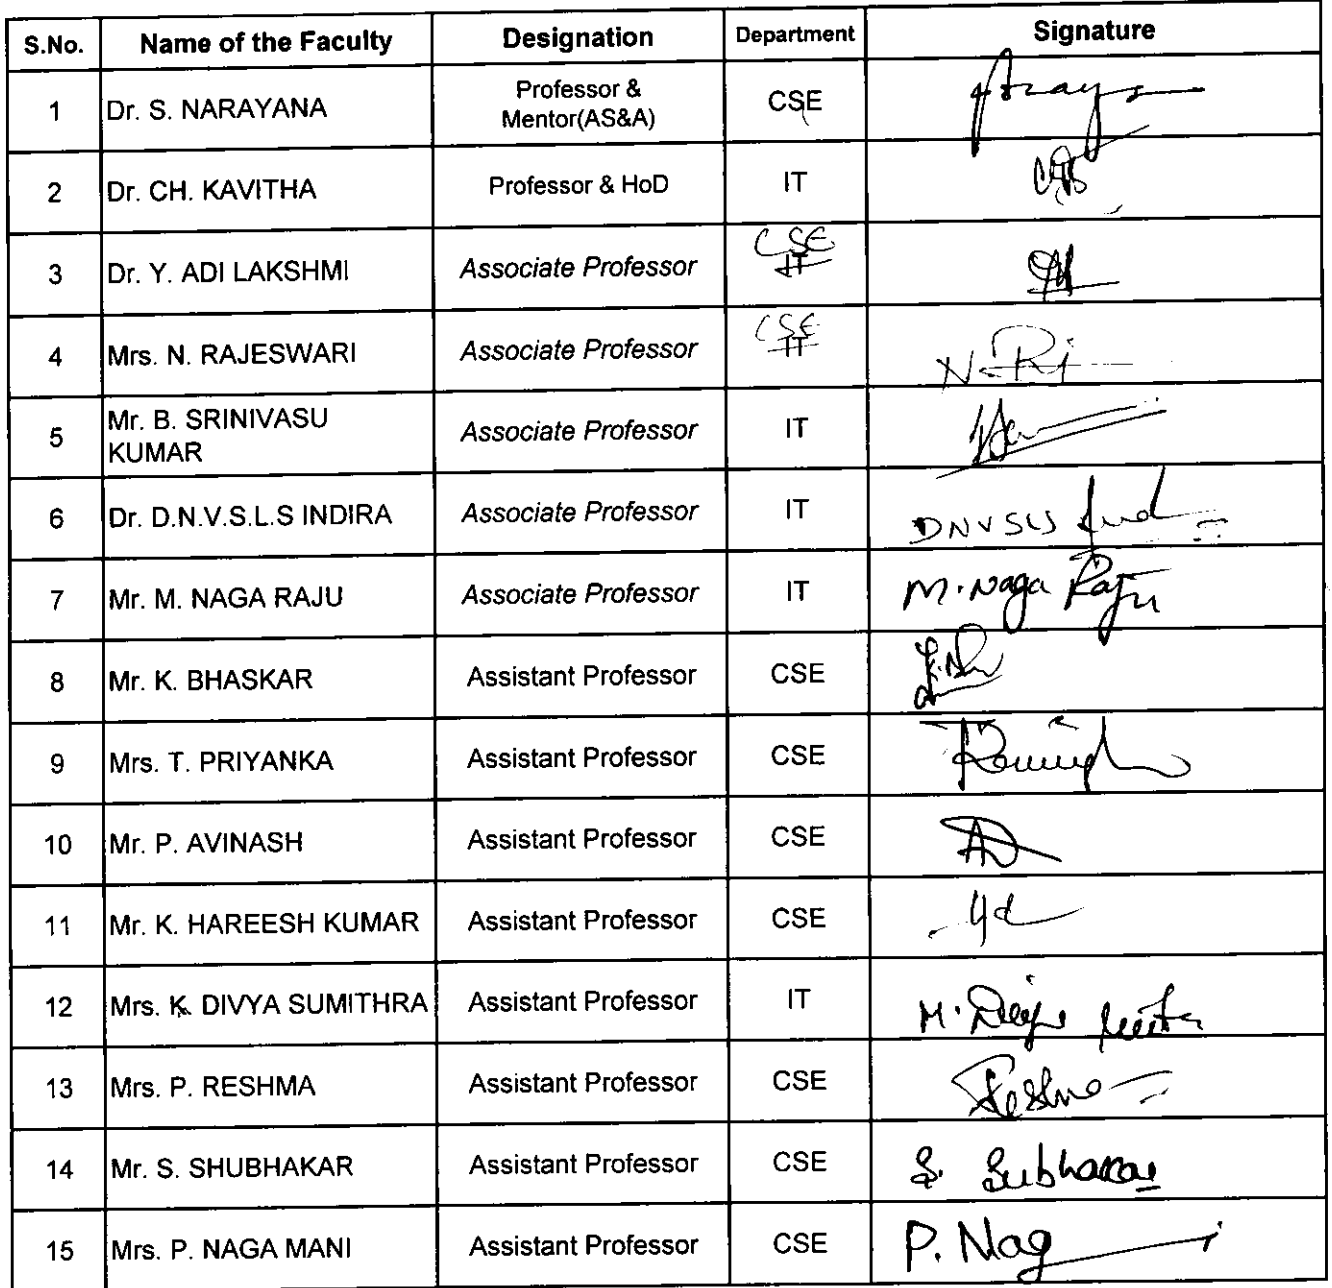 S.No. Name of the Faculty Designation Department Signature
1 Dr. S. NARAYANA Professor & CSE
Mentor(AS&A)
2 Dr. CH. KAVITHA Professor & HoD IT
CSE
3 Dr. Y. ADI LAKSHMI Associate Professor IT
CSE
4 Mrs. N. RAJESWARI Associate Professor IT
Mr. B. SRINIVASU
5 KUMAR Associate Professor IT
6 Dr. D.N.V.S.L.S INDIRA Associate Professor IT DNVSLS
7 Mr. M. NAGA RAJU Associate Professor IT M. Naga Raju
8 Mr. K. BHASKAR Assistant Professor CSE
9 Mrs. T. PRIYANKA Assistant Professor CSE
10 Mr. P. AVINASH Assistant Professor CSE
11 Mr. K. HAREESH KUMAR Assistant Professor CSE
12 Mrs. K. DIVYA SUMITHRA Assistant Professor IT M.
13 Mrs. P. RESHMA Assistant Professor CSE
14 Mr. S. SHUBHAKAR Assistant Professor CSE S. Subhakar
15 Mrs. P. NAGA MANI Assistant Professor CSE P. Nag